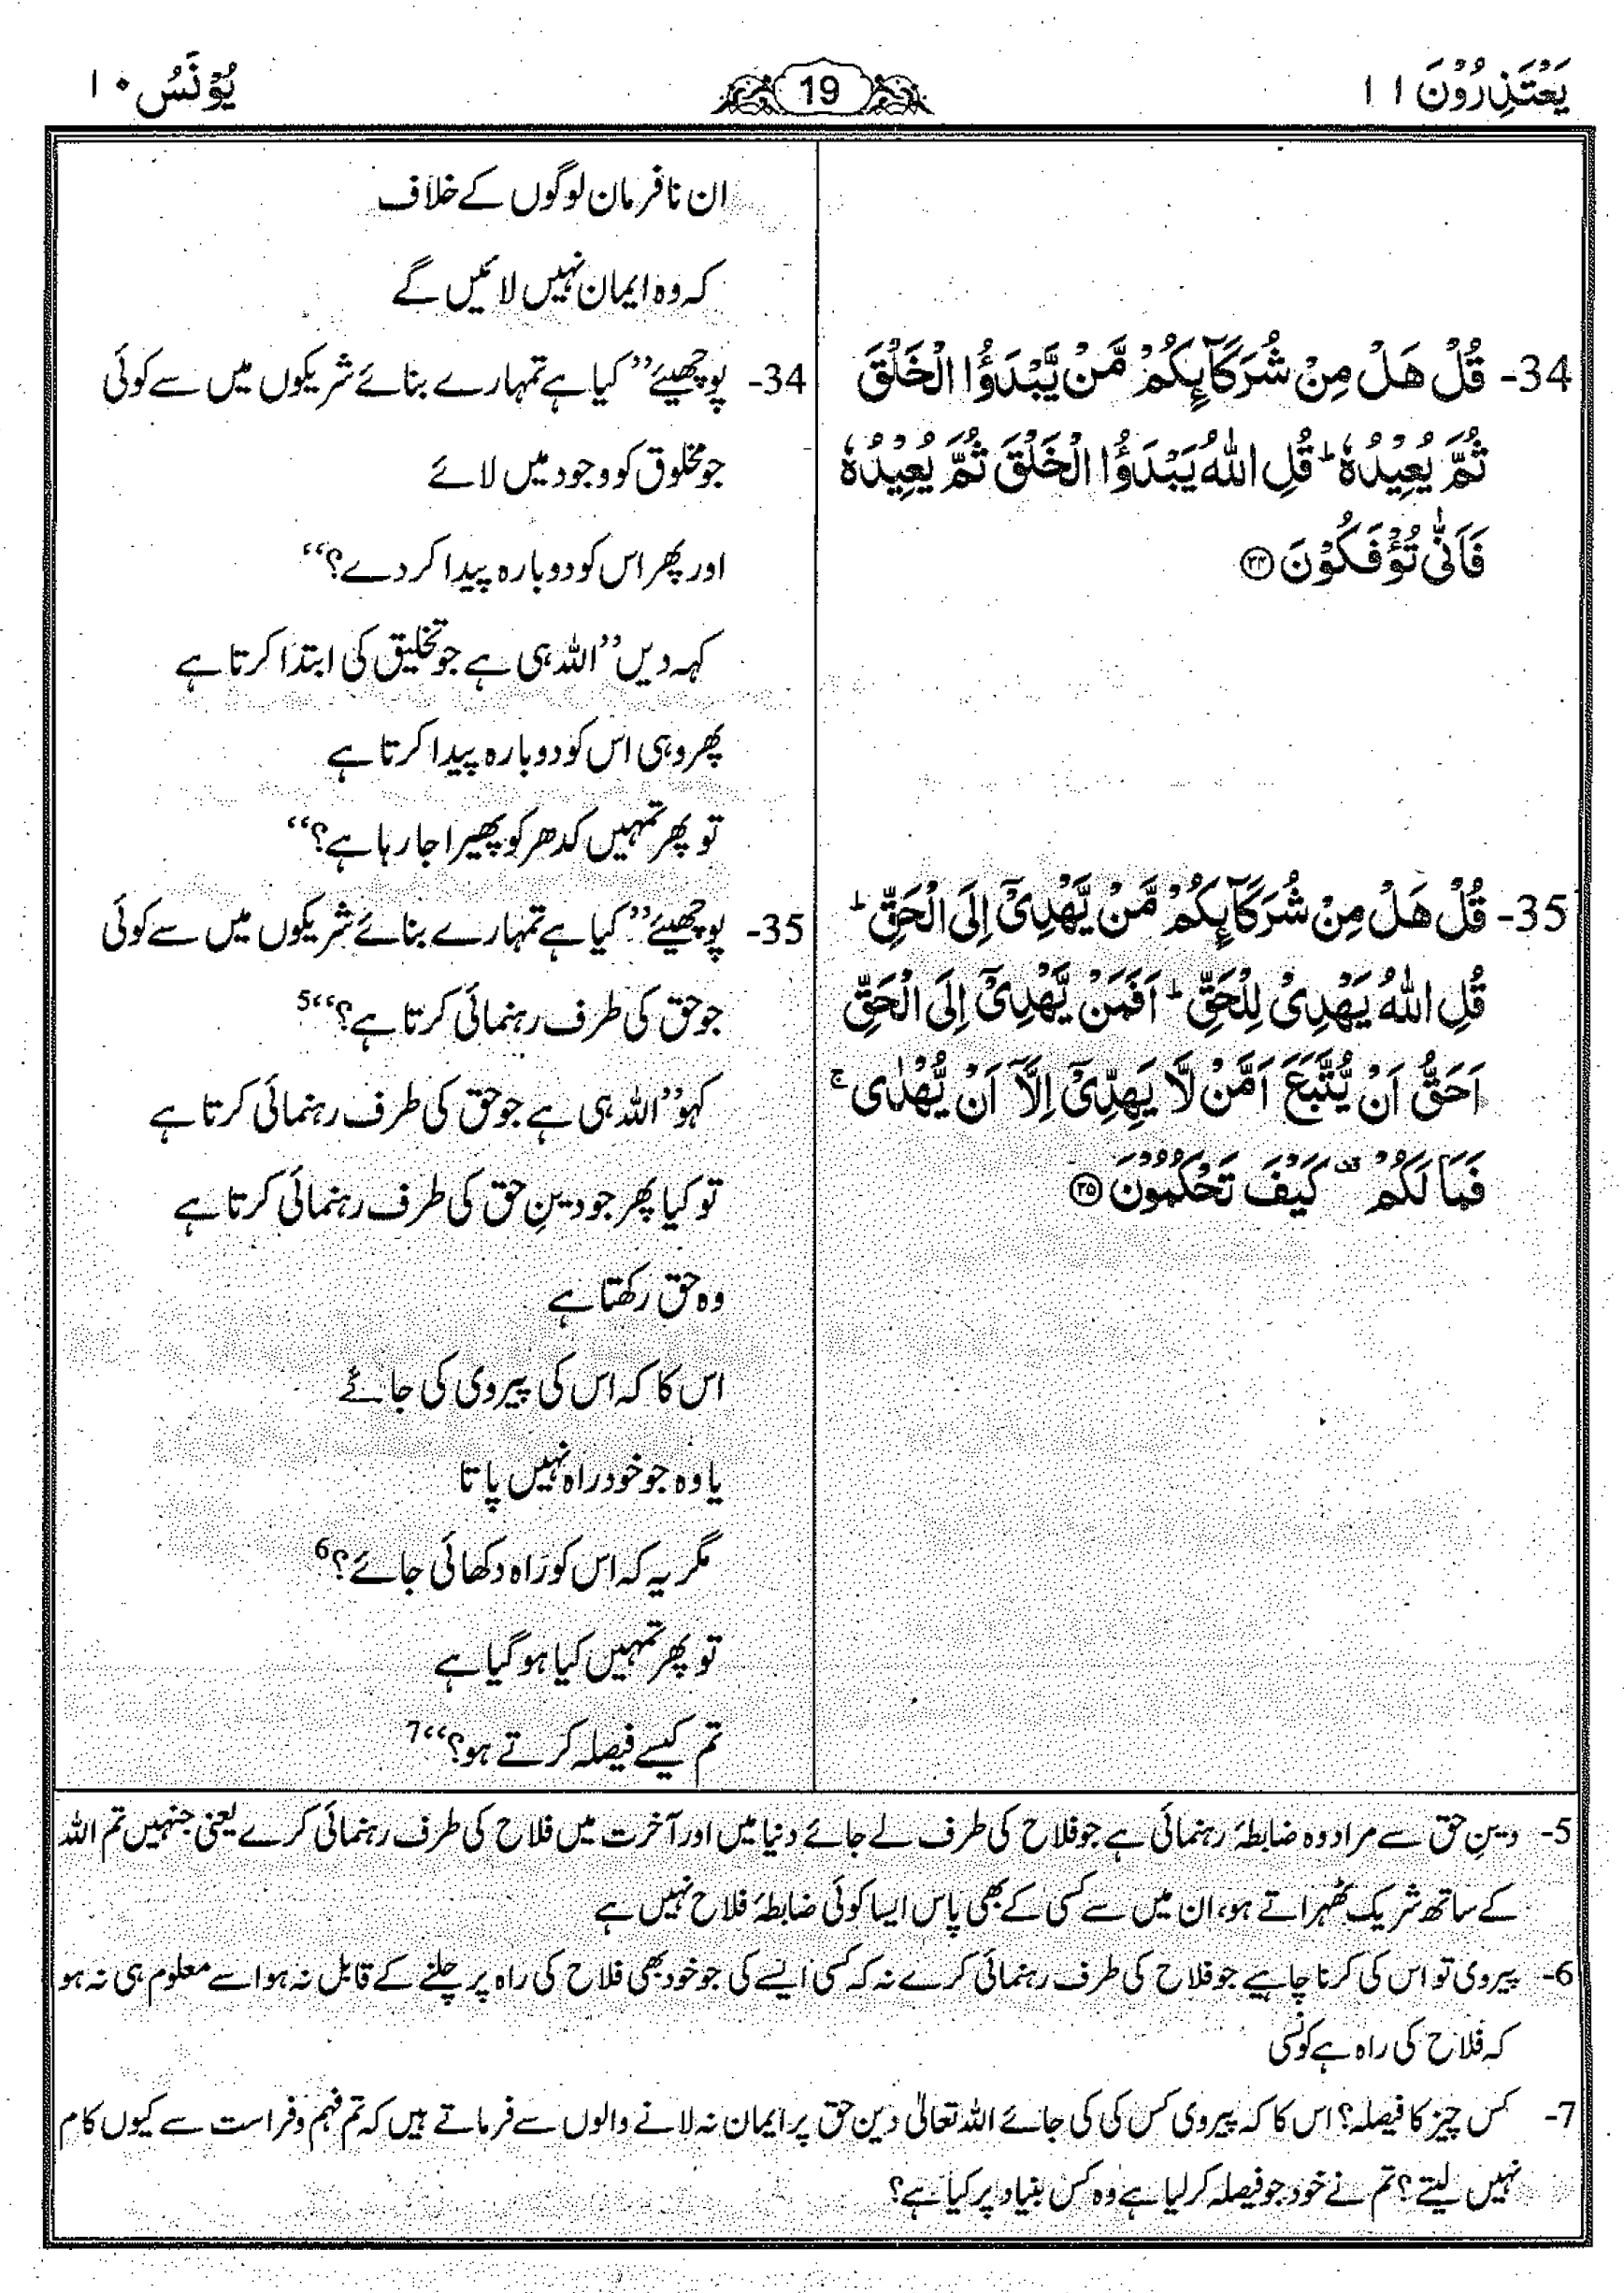 یَعْتَذِرُوْنَ ۱۱
19
یُوْنُس ۱۰
ان نافرمان لوگوں کے خلاف
کہ وہ ایمان نہیں لائیں گے
34- قُلْ هَلْ مِنْ شُرَكَآىِٕكُمْ مَّنْ یَّبْدَؤُا الْخَلْقَ
ثُمَّ یُعِیْدُهٗ ؕ قُلِ اللّٰهُ یَبْدَؤُا الْخَلْقَ ثُمَّ یُعِیْدُهٗ
فَاَنّٰی تُؤْفَكُوْنَ ۝۳۴
34- پوچھیئے ’’کیا ہے تمہارے بنائے شریکوں میں سے کوئی
جو مخلوق کو وجود میں لائے
اور پھر اس کو دوبارہ پیدا کر دے؟‘‘
کہہ دیں ’’اللہ ہی ہے جو تخلیق کی ابتدا کرتا ہے
پھر وہی اس کو دوبارہ پیدا کرتا ہے
تو پھر تمہیں کدھر کو پھیرا جا رہا ہے؟‘‘
35- قُلْ هَلْ مِنْ شُرَكَآىِٕكُمْ مَّنْ یَّهْدِیْۤ اِلَی الْحَقِّ ؕ
قُلِ اللّٰهُ یَهْدِیْ لِلْحَقِّ ؕ اَفَمَنْ یَّهْدِیْۤ اِلَی الْحَقِّ
اَحَقُّ اَنْ یُّتَّبَعَ اَمَّنْ لَّا یَهِدِّیْۤ اِلَّاۤ اَنْ یُّهْدٰی ۚ
فَمَا لَكُمْ ۫ كَیْفَ تَحْكُمُوْنَ ۝۳۵
35- پوچھیئے ’’کیا ہے تمہارے بنائے شریکوں میں سے کوئی
جو حق کی طرف رہنمائی کرتا ہے؟‘‘5
کہو ’’اللہ ہی ہے جو حق کی طرف رہنمائی کرتا ہے
تو کیا پھر جو دینِ حق کی طرف رہنمائی کرتا ہے
وہ حق رکھتا ہے
اس کا کہ اس کی پیروی کی جائے
یا وہ جو خود راہ نہیں پاتا
مگر یہ کہ اس کو راہ دکھائی جائے؟6
تو پھر تمہیں کیا ہو گیا ہے
تم کیسے فیصلہ کرتے ہو؟‘‘7
5- دینِ حق سے مراد وہ ضابطۂ رہنمائی ہے جو فلاح کی طرف لے جائے دنیا میں اور آخرت میں فلاح کی طرف رہنمائی کرے یعنی جنہیں تم اللہ
کے ساتھ شریک ٹھہراتے ہو، ان میں سے کسی کے بھی پاس ایسا کوئی ضابطۂ فلاح نہیں ہے
6- پیروی تو اس کی کرنا چاہیے جو فلاح کی طرف رہنمائی کرے نہ کہ کسی ایسے کی جو خود بھی فلاح کی راہ پر چلنے کے قابل نہ ہو اسے معلوم ہی نہ ہو
کہ فلاح کی راہ ہے کونسی
7- کس چیز کا فیصلہ؟ اس کا کہ پیروی کس کی کی جائے اللہ تعالیٰ دین حق پر ایمان نہ لانے والوں سے فرماتے ہیں کہ تم فہم و فراست سے کیوں کام
نہیں لیتے؟ تم نے خود جو فیصلہ کر لیا ہے وہ کس بنیاد پر کیا ہے؟